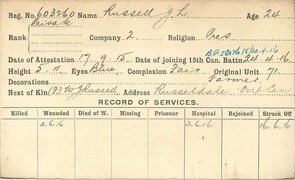 Reg. No. 603260 Name Russell J. L. Age 24
Rank Private Company 2. Religion Pres
B.O.
Date of Attestation 17.9.15 Date of joining 15th Can. Battn 24.4.16
Height 5' Eyes Blue, Complexion Fair Original Unit 71
Decorations: Farmer
Next of Kin (F) W. J Russell Address Russeldale Ont Can
RECORD OF SERVICES.
Killed Wounded Died of W. Missing Prisoner Hospital Rejoined Struck Off
3.6.16 3.6.16 16.6.16